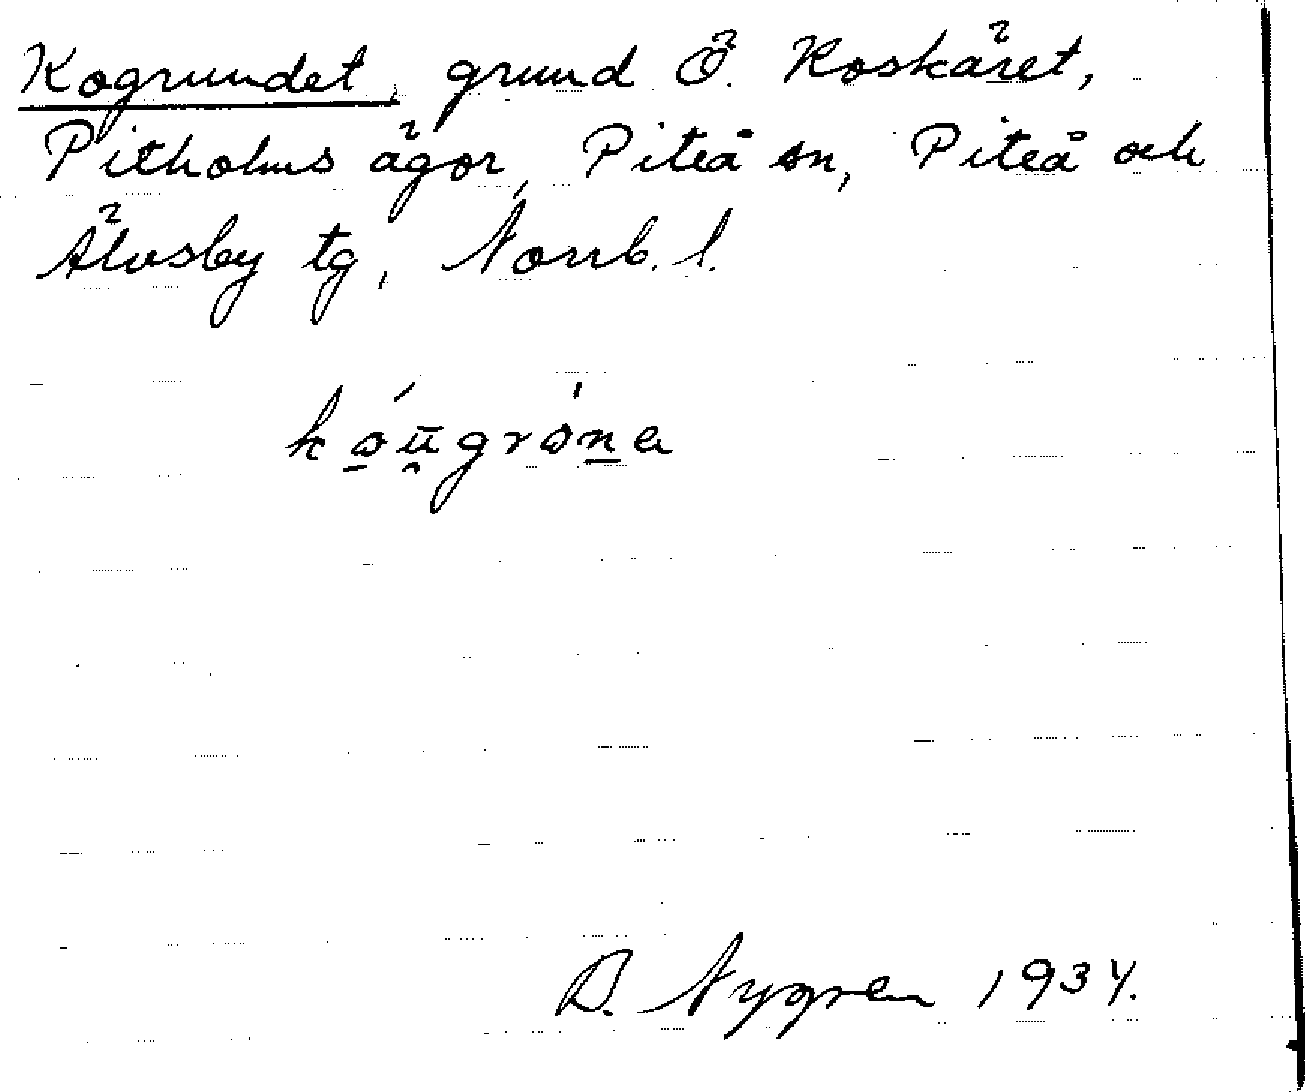 Kogrundet, grund Ö. Koskäret,
Pitholms ägor, Piteå sn, Piteå och
Älvsby tg, Norrb. l.
kǫ́ū̯grón̲a
D. Nygren 1934.